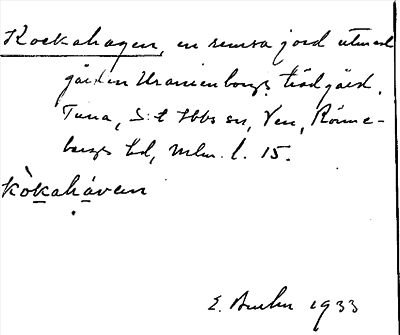 Kockahagen, en remsa jord utmed
gården Uranienborgs trädgård.
Tuna, S:t Ibbs sn, Ven, Rönne-
bergs hd, Mlm. l. 15.
kòkahávan
E. 1933